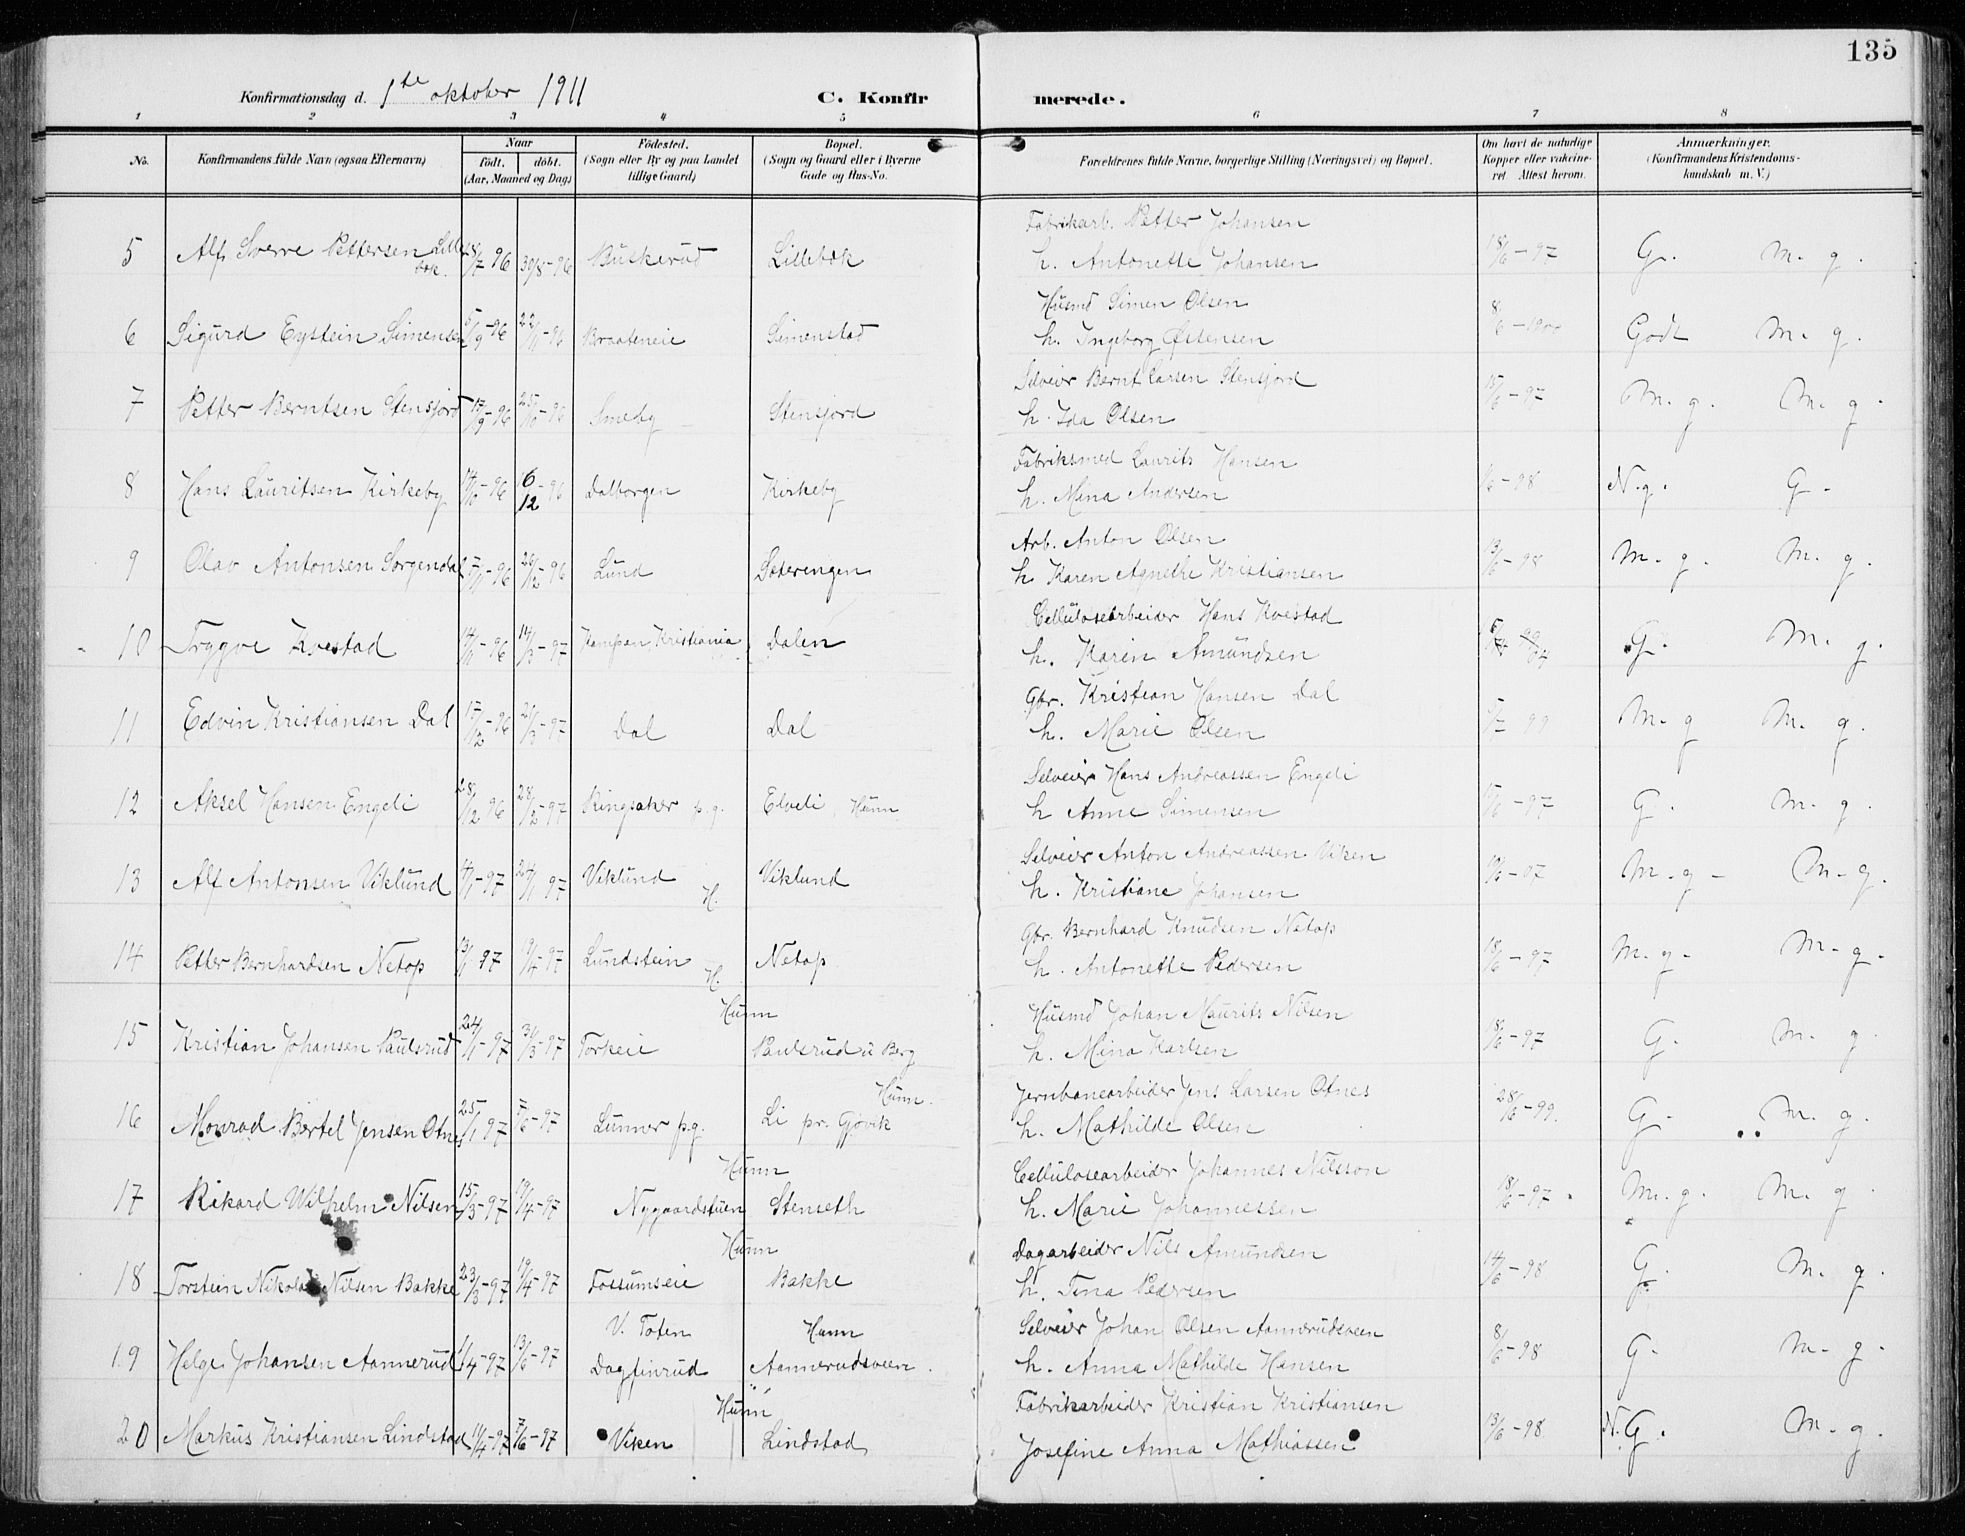 135
Konfirmationsdag d. 1ste oktober 1911
C. Konfirmerede.
1 2 3 4 5 6 7 8
No.
Konfirmandens fulde Navn (ogsaa Efternavn)
Naar
født. døbt.
(Aar, Maaned og Dag)
Fødested.
(Sogn eller By og paa Landet
tillige Gaard)
Bopæl.
(Sogn og Gaard eller i Byerne
Gade og Hus-No.
Forældrenes fulde Navne, borgerlige Stilling (Næringsvei) og Bopæl.
Om havt de naturlige
Kopper eller vakcine-
ret. Attest herom.
Anmærkninger.
(Konfirmandens Kristendoms-
kundskab m. V.)
Fabrikarb. Petter Johansen
5 Alf Sverre Pettersen Lille 28/7 96 30/8-96 Buskerud Lillebæk h. Antonette Johansen 18/6-97 G. M. g.
bæk.
Husmd Simen Olsen
6 Sigurd Eystein Simensen 5/9-96 22/11-96 Braateneie Simenstad h. Ingeborg Østensen 8/6 Godt M. g.
Selveier Bernt Larsen Stensjord
7 Petter Berntsen Stensjord 17/9-96 25/10-96 Smeby Stensjord h. Ida Olsen 15/6-97 M. g. M. g.
Fabriksmed Laurits Hansen
8 Hans Lauritsen Kirkeby 14/10-96 16/12-96 Dalborgen Kirkeby h. Mina Andersen -98 N. g. G.
Arb. Anton Olsen
9 Olav Antonsen Sorgendal 5/11-96 26/12-96 Lund Sæterengen h. Karen Agnethe Kristiansen 13/6-98 M. g. M. g.
Cellulosearbeider Hans Kvestad
10 Trygve Kvestad 14/11-96 14/3-97 Kampen, Kristiania Dalen h. Karen Amundsen G. M. g.
Gbr. Kristian Hansen Dal
11 Edvin Kristiansen Dal 17/12-96 21/3-97 Dal Dal h. Marie Olsen 99 M. g M. g.
Selveier Hans Andreassen Engeli
12 Aksel Hansen Engeli 28/12 96 28/2-97 Ringsaker p.g. Elveli, Hunn h Anne Simensen -97 G. M. g.
Selveier Anton Andreassen Viken
13 Alf Antonsen Viklund 14/1-97 24/1 97 Viklund H. Viklund h. Kristiane Johansen 19/6-07 M. g- M. g.
Gbr. Bernhard Knudsen Netop
14 Petter Bernhardsen Netop 13/1 97 19/4-97 Lundstein H. Netop h. Antonette Pedersen 18/6-97 M. g. M. g.
Hunn Husmd Johan Maurits Nilsen
15 Kristian Johansen Paulsrud 24/1-97 31/3-97 Torkeie Paulsrud u Berg h. Mina Karlsen 18/6-97 G. M. g.
Hunn. Jernbanearbeider Jens Larsen Otnes
16 Monrad Bertel Jensen Otnes 25/1 97 5/6-97 Lunner p.g. Li pr. Gjøvik h. Mathilde Olsen 28/6-99. G- M. g.
Hunn Cellulosearbeider Johannes Nilsson
17 Rikard Wilhelm Nilsen 15/3-97 19/4-97 Nygaardstuen Stenseth h. Marie Johannessen 18/6-97 M. g. M. g
Hunn Dagarbeider Nils Amundsen
18 Torstein Nikolai Nilsen Bakke 23/3-97 19/4-97 Fossumseie Bakke h. Tina Pedersen 14/6-98 G. M. g.
V. Toten Hunn Selveier Johan Olsen Aannerudsveen
19 Helge Johansen Aannerud 1/4-97 13/6-97 Dagfinrud Aannerudsveen. h. Anna Mathilde Hansen 8/6-98 G. M. g.
Hunn Fabrikarbeider Kristian Kristiansen
20 Markus Kristiansen Lindstad 11/4-97 7/6-97 Viken Lindstad Josefine Anna Mathiassen 13/6-98 N. G. M. g.